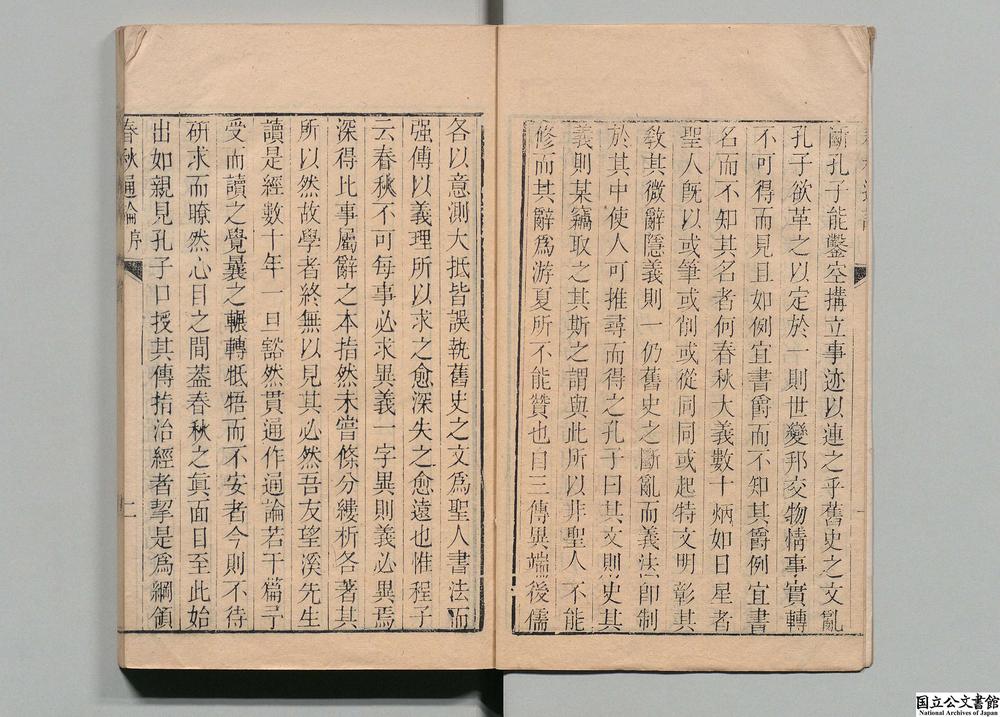 斷孔子能鑿空搆立事迹以連之乎舊史之文亂
孔子欲革之以定於一則世變邦交物情事實轉
不可得而見且如例宜書爵而不知其爵例宜書
名而不知其名者何春秋大義數十炳如日星者
聖人旣以或筆或削或從同同或起特文明彰其
敎其微辭隱義則一仍舊史之斷亂而義法卽制
於其中使人可推尋而得之孔子曰其文則史其
義則某竊取之其斯之謂與此所以非聖人不能
修而其辭爲游夏所不能贊也曰三傳異端後儒
各以意測大抵皆誤執舊史之文爲聖人書法而
强傅以義理所以求之愈深失之愈遠也惟程子
云春秋不可每事必求異義一字異則義必異焉
深得比事屬辭之本指然未嘗條分縷析各著其
所以然故學者終無以見其必然吾友望溪先生
讀是經數十年一旦豁然貫通作通論若干篇予
受而讀之覺曩之輾轉牴牾而不安者今則不待
研求而瞭然心目之間葢春秋之眞面目至此始
出如親見孔子口授其傳指治經者挈是爲綱領
春秋通論 序
二
国立公文書館
National Archives of Japan